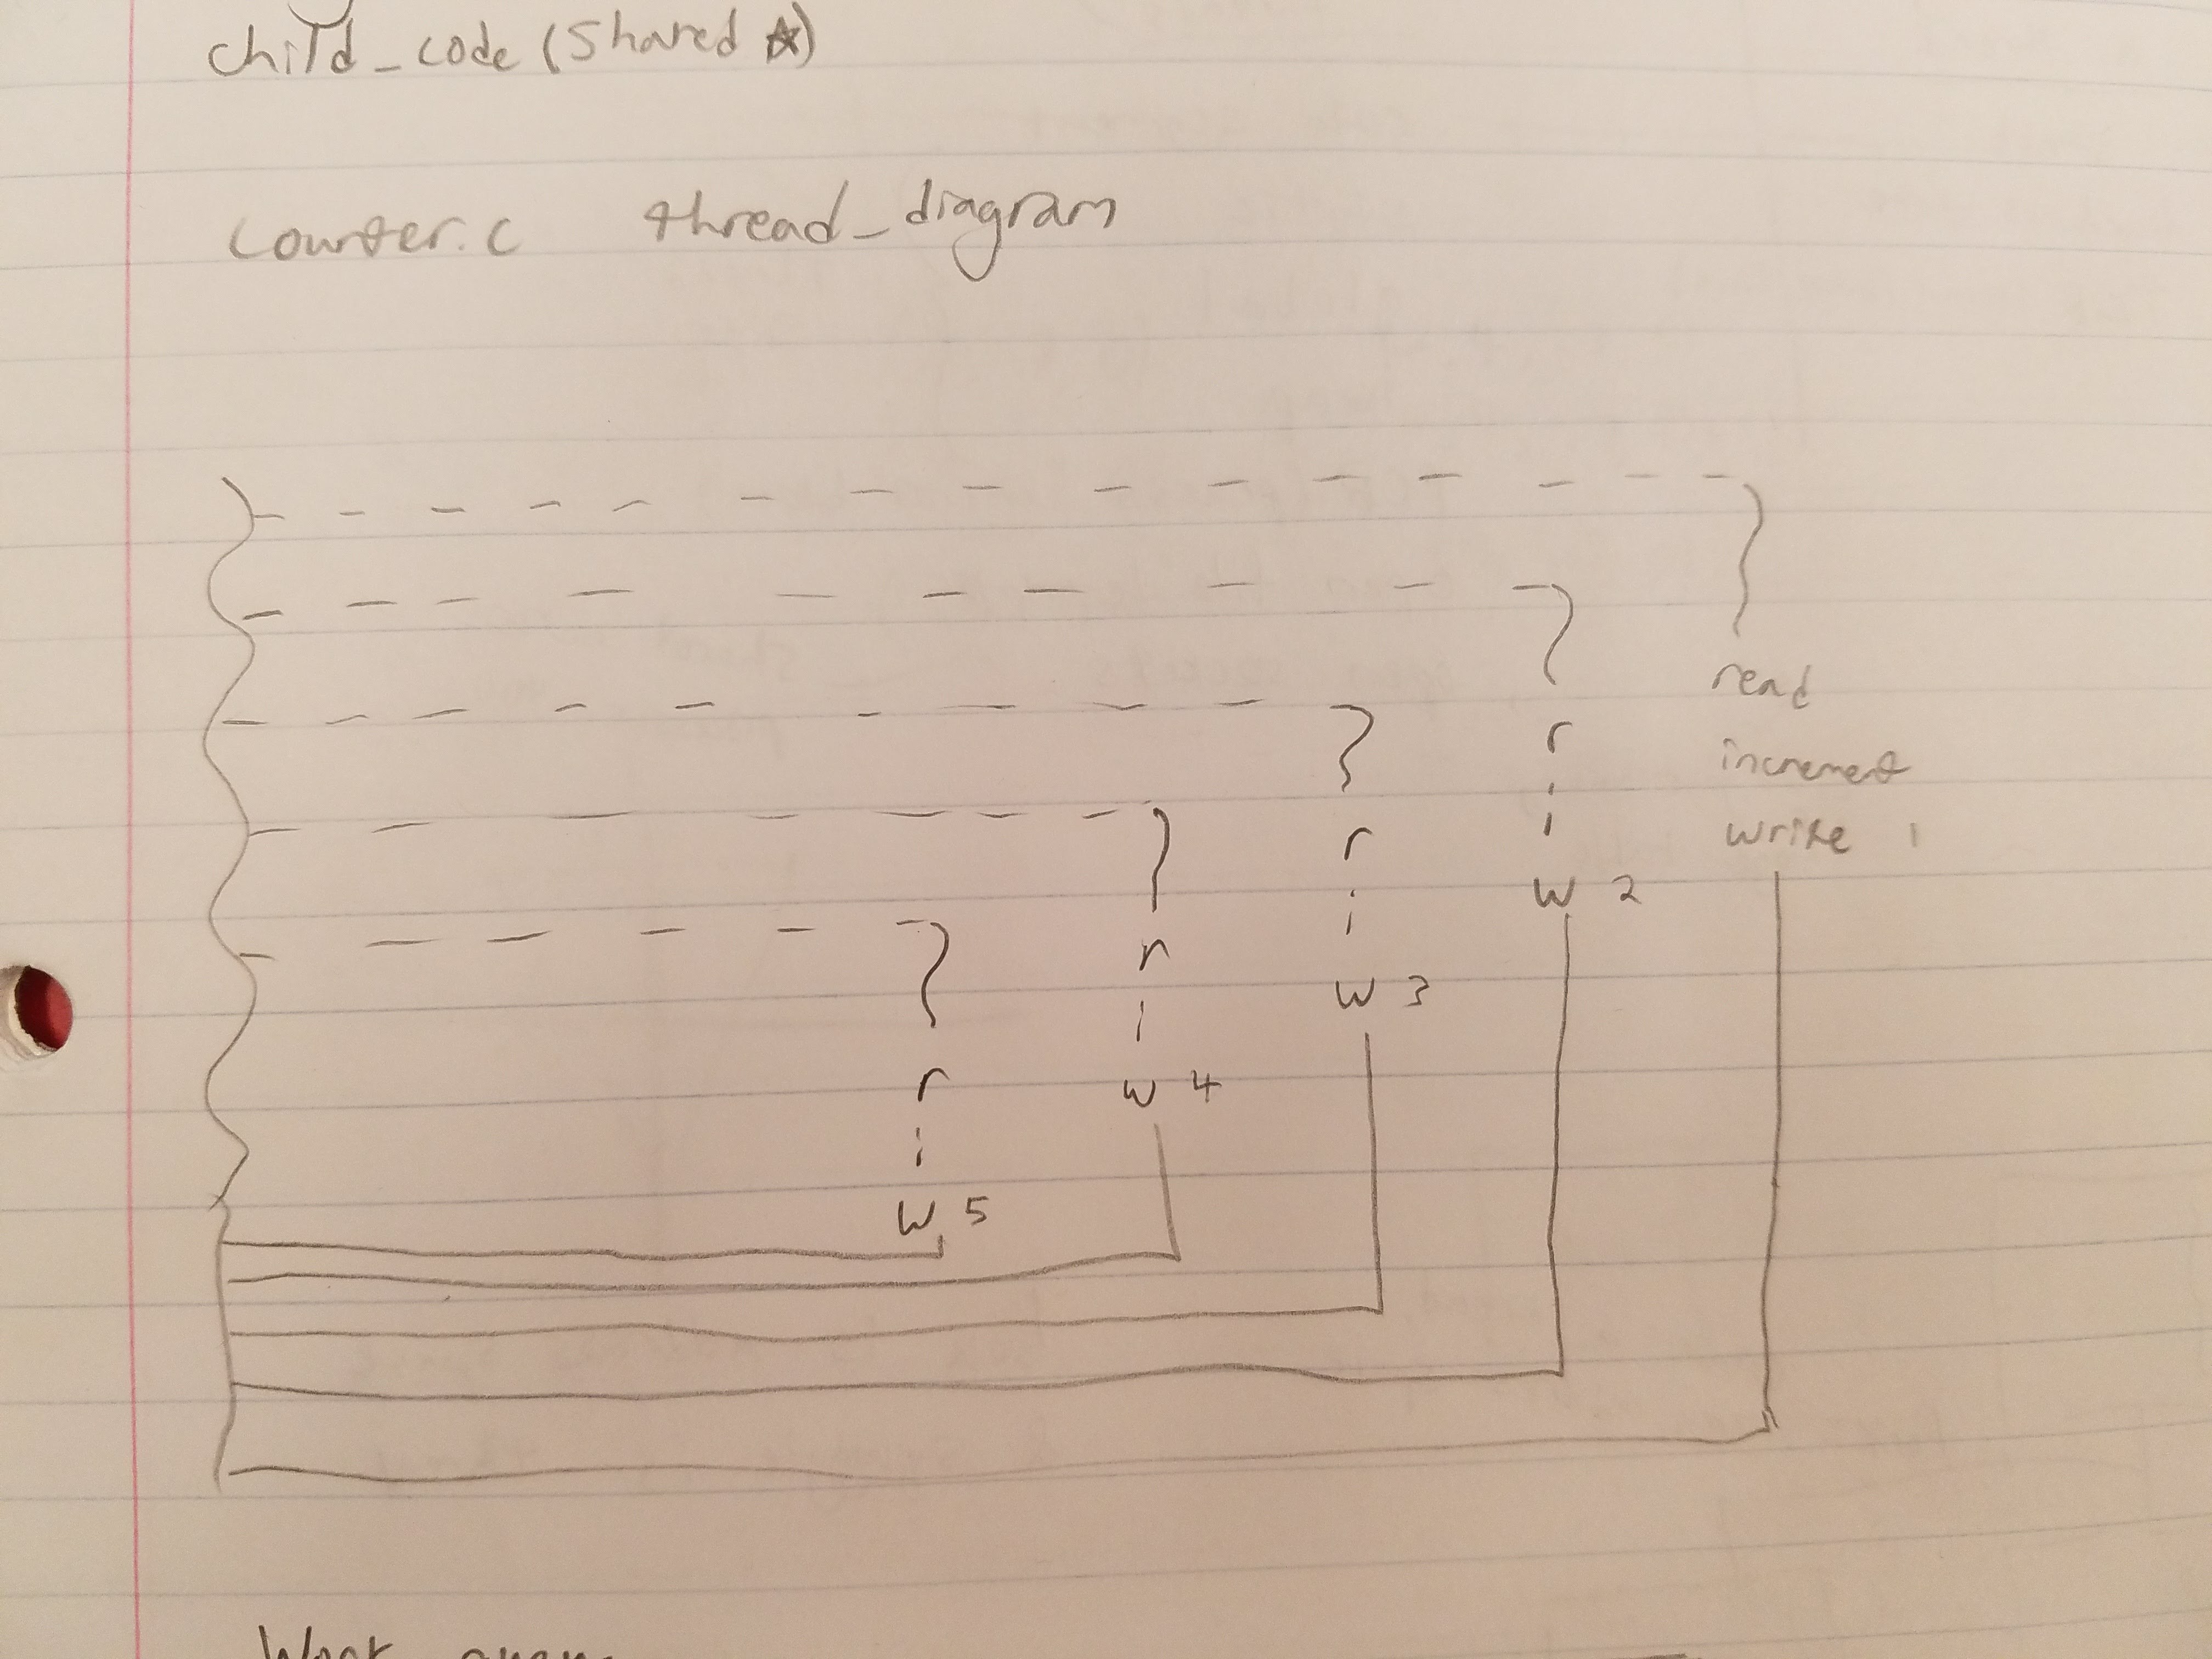 child_code (shared ☆)
counter.c thread_diagram
read
r
increment
i
write 1
r
i
w 2
r
i
w 3
r
i
w 4
w 5